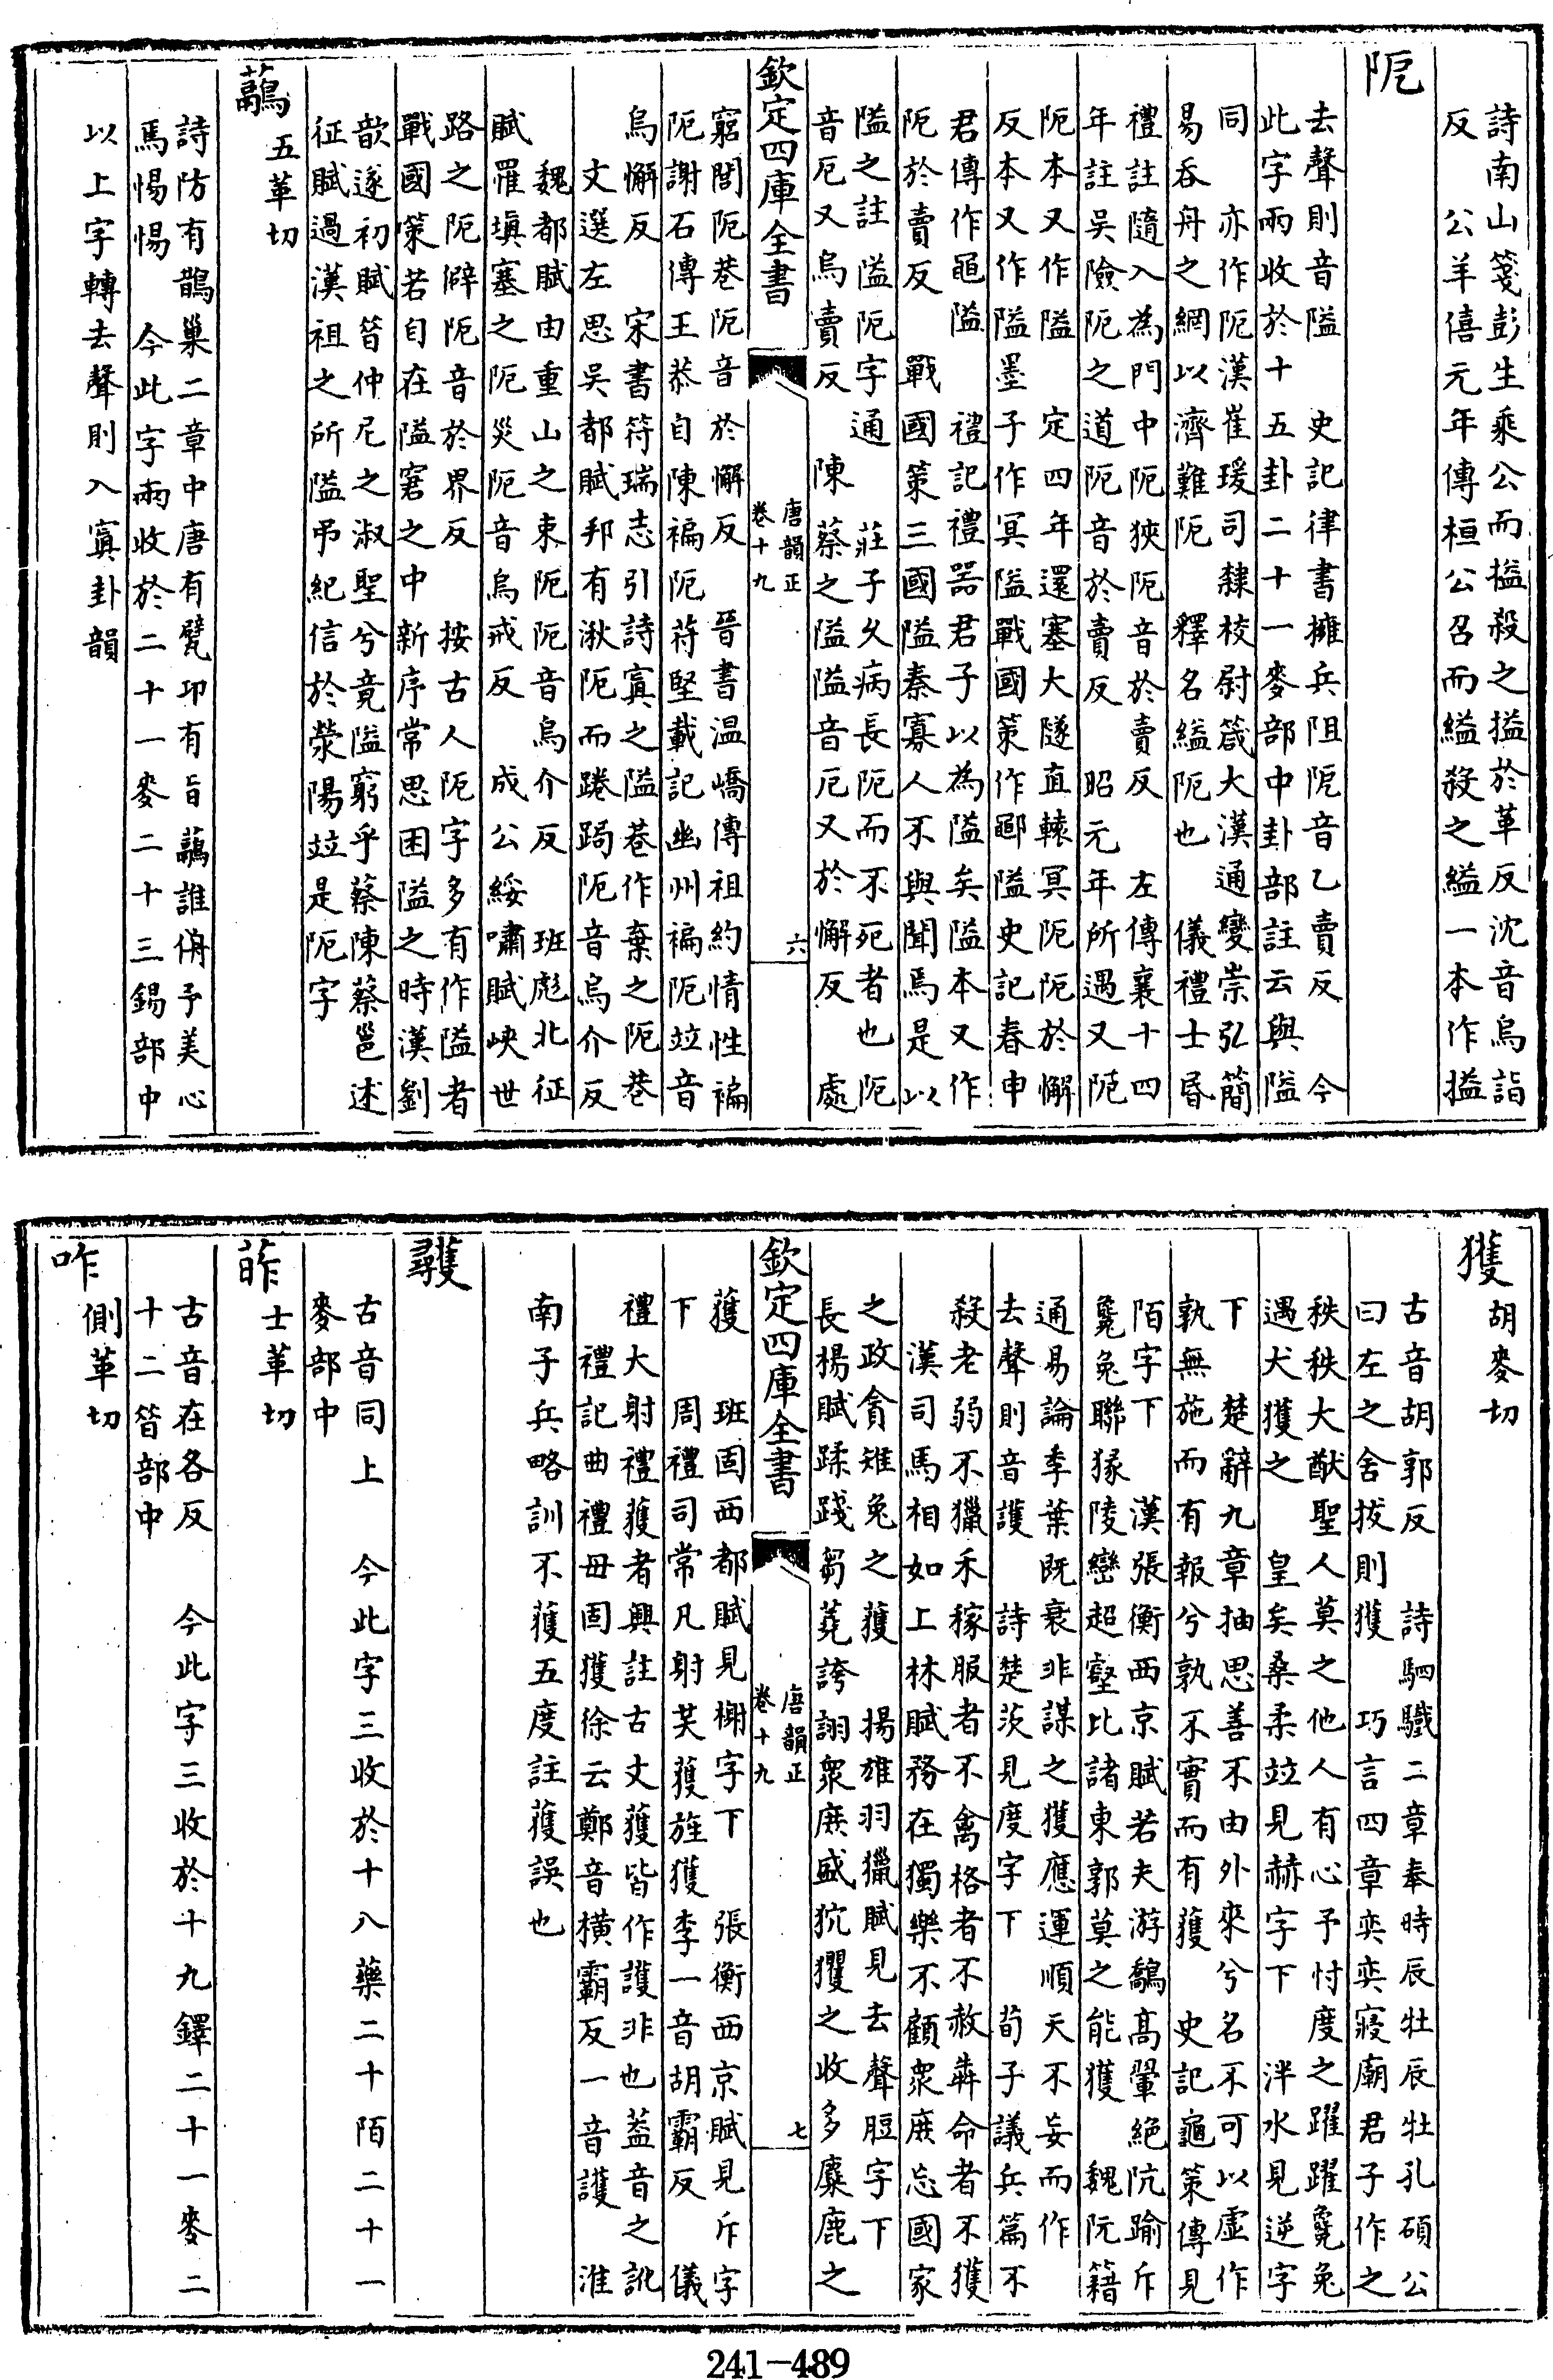 詩南山箋彭生乘公而搤殺之搤於革反沈音烏詣
反 公羊僖元年傳桓公召而縊殺之縊一本作搤
阨
去聲則音隘 史記律書擁兵阻阨音乙賣反 今
此字兩收於十五卦二十一麥部中卦部註云與隘
同 亦作阨漢崔瑗司隸校尉箴大漢通變崇弘簡
易吞舟之網以濟難阨 釋名縊阨也 儀禮士昏
禮註隨入為門中阨狹阨音於賣反 左傳襄十四
年註吳險阨之道阨音於賣反 昭元年所遇又阨
阨本又作隘 定四年還塞大隧直轅冥阨阨於懈
反本又作隘墨子作冥隘戰國策作鄳隘史記春申
君傳作黽隘 禮記禮器君子以為隘矣隘本又作
阨於賣反 戰國策三國隘秦寡人不與聞焉是以
隘之註隘阨字通 莊子久病長阨而不死者也阨
音厄又烏賣反 陳蔡之隘隘音厄又於懈反 處
欽定四庫全書 唐韻正
卷十九 六
窮閭阨巷阨音於懈反 晉書温嶠傳祖約情性褊
阨謝石傳王恭自陳褊阨苻堅載記幽州褊阨竝音
烏懈反 宋書符瑞志引詩寘之隘巷作棄之阨巷
文選左思吳都賦邦有湫阨而踡跼阨音烏介反
魏都賦由重山之束阨阨音烏介反 班彪北征
賦罹塡塞之阨災阨音烏戒反 成公綏嘯賦峽世
路之阨僻阨音於界反 按古人阨字多有作隘者
戰國策若自在隘窘之中新序常思困隘之時漢劉
歆遂初賦昔仲尼之淑聖兮竟隘窮乎蔡陳蔡邕述
征賦過漢祖之所隘弔紀信於滎陽竝是阨字
虉 五革切
詩防有鵲巢二章中唐有甓卭有旨虉誰侜予美心
焉惕惕 今此字兩收於二十一麥二十三錫部中
以上字轉去聲則入寘卦韻
獲 胡麥切
古音胡郭反 詩駟驖二章奉時辰牡辰牡孔碩公
曰左之舍拔則獲 巧言四章奕奕寢廟君子作之
秩秩大猷聖人莫之他人有心予忖度之躍躍毚兔
遇犬獲之 皇矣桑柔竝見赫字下 泮水見逆字
下 楚辭九章抽思善不由外來兮名不可以虛作
孰無施而有報兮孰不實而有獲 史記龜策傳見
陌字下 漢張衡西京賦若夫游鷮高翬絕阬踰斥
毚兔聯猭陵巒超壑比諸東郭莫之能獲 魏阮籍
通易論季葉既衰非謀之獲應運順天不妄而作
去聲則音護 詩楚茨見度字下 荀子議兵篇不
殺老弱不獵禾稼服者不禽格者不赦犇命者不獲
漢司馬相如上林賦務在獨樂不顧衆庶忘國家
之政貪雉兔之獲 揚雄羽獵賦見去聲脰字下
長楊賦蹂踐芻蕘誇詡衆庶盛狖玃之收多麋鹿之
欽定四庫全書 唐韻正
卷十九 七
獲 班固西都賦見榭字下 張衡西京賦見斥字
下 周禮司常凡射共獲旌獲李一音胡霸反 儀
禮大射禮獲者興註古文獲皆作護非也蓋音之訛
禮記曲禮毋固獲徐云鄭音橫霸反一音護 淮
南子兵略訓不獲五度註獲誤也
㩴
古音同上 今此字三收於十八藥二十陌二十一
麥部中
㡸 士革切
古音在各反 今此字三收於十九鐸二十一麥二
十二昔部中
咋 側革切
241-489